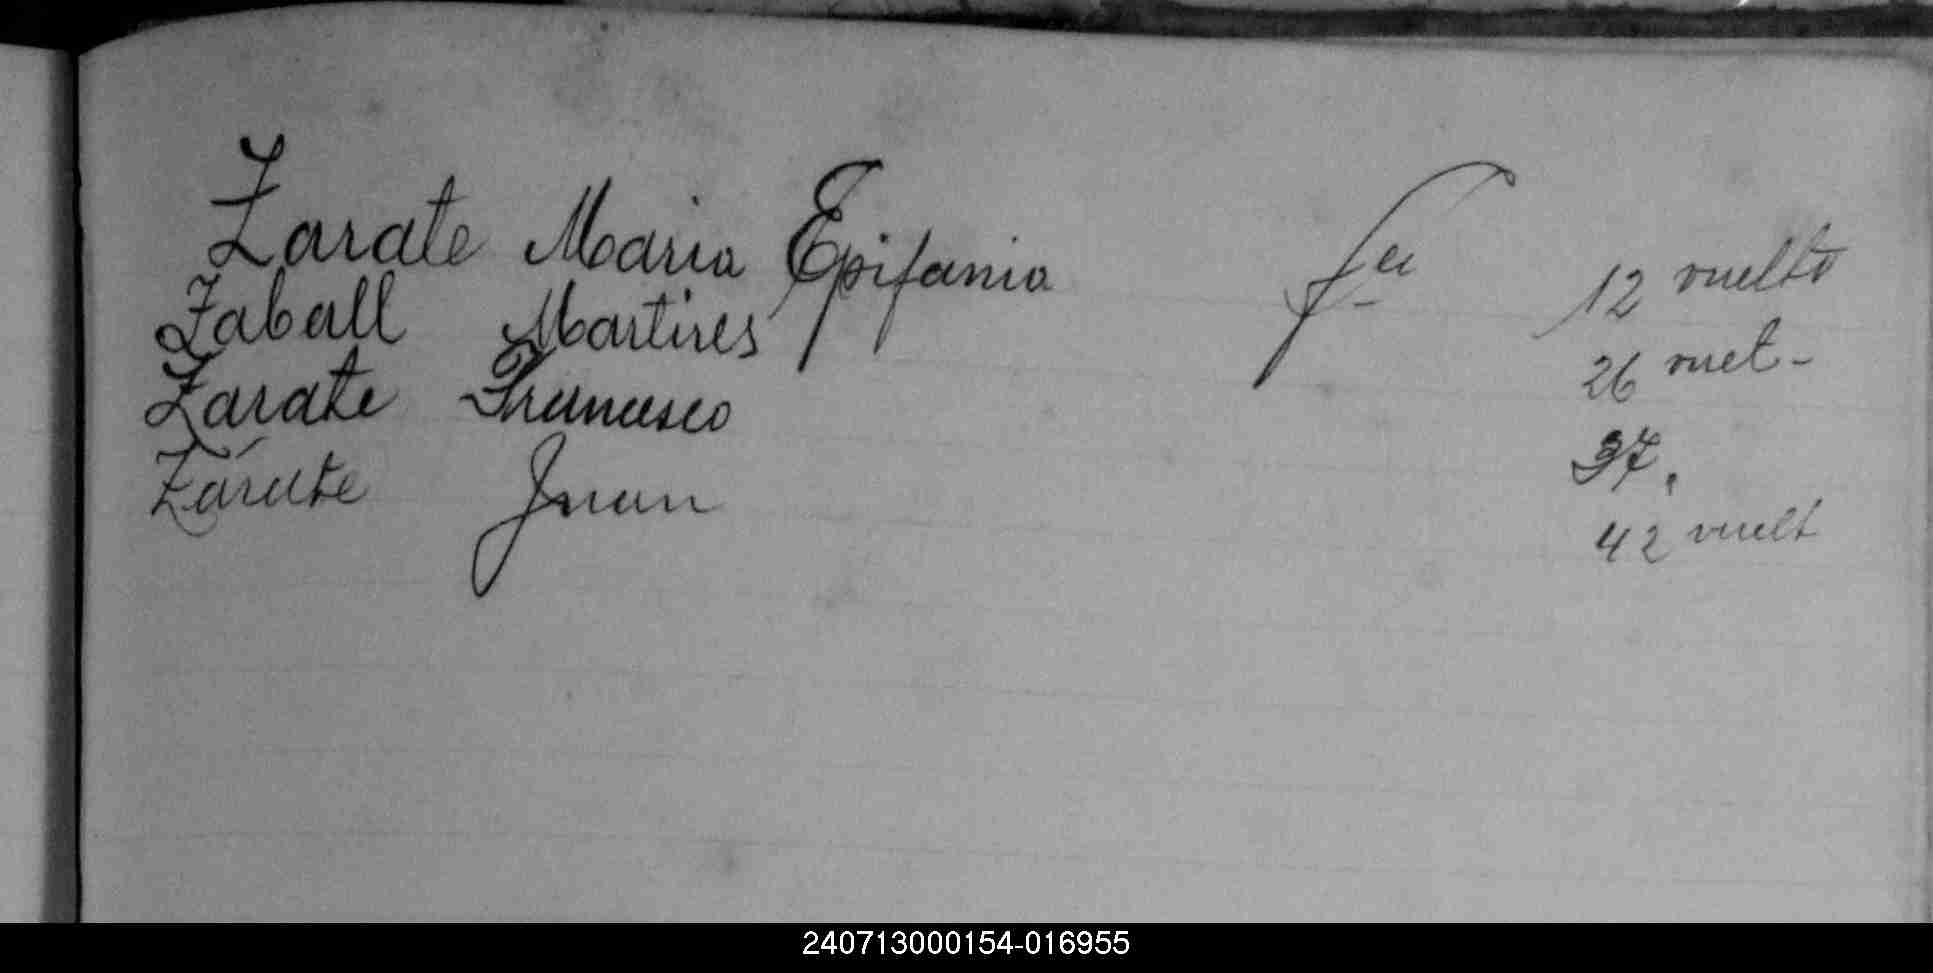 Zarate Maria Epifania fa 12 vuelto
Zaball Martires 26 vuet-
Zarate Francisco 37.
Zárate Juan 42 vuelt
240713000154-016955